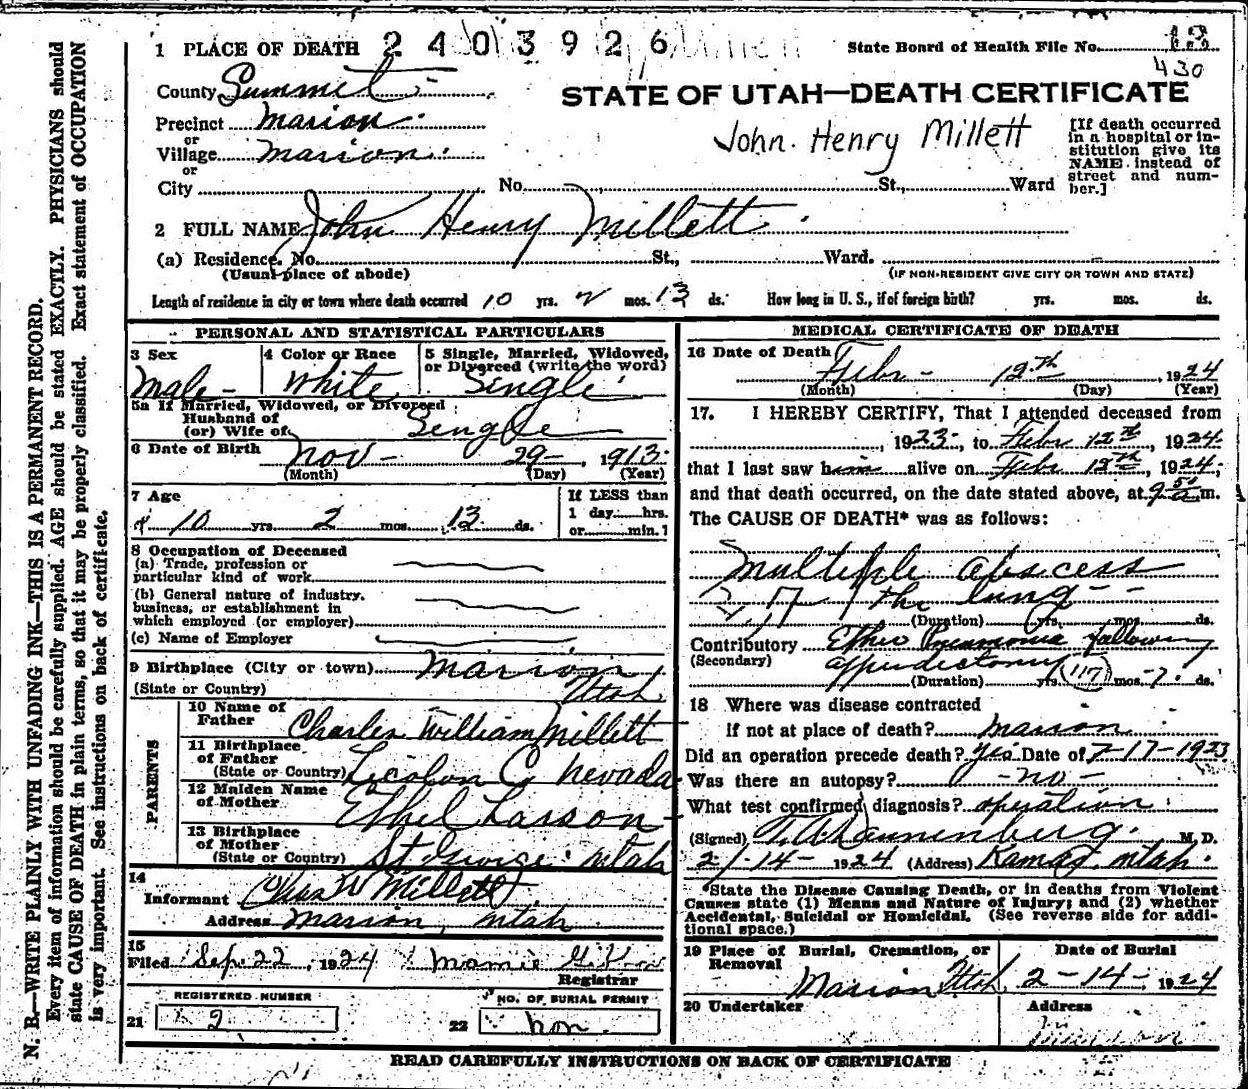 1 PLACE OF DEATH 2403926
State Board of Health File No. 13
430
County Summit
STATE OF UTAH—DEATH CERTIFICATE
Precinct Marion
or
Village Marion
or
City No. St., Ward
John Henry Millett
[If death occurred
in a hospital or in-
stitution give its
NAME instead of
street and num-
ber.]
2 FULL NAME John Henry Millett
(a) Residence. No. St., Ward.
(Usual place of abode)
(IF NON-RESIDENT GIVE CITY OR TOWN AND STATE)
Length of residence in city or town where death occurred 10 yrs. 2 mos. 13 ds. How long in U. S., if of foreign birth? yrs. mos. ds.
PERSONAL AND STATISTICAL PARTICULARS
3 Sex
Male
4 Color or Race
White
5 Single, Married, Widowed,
or Divorced (write the word)
Single
5a If Married, Widowed, or Divorced
Husband of
(or) Wife of Single
6 Date of Birth Nov 29 1913
(Month) (Day) (Year)
7 Age
10 yrs. 2 mos. 13 ds.
If LESS than
1 day hrs.
or min.
8 Occupation of Deceased
(a) Trade, profession or
particular kind of work
(b) General nature of industry.
business, or establishment in
which employed (or employer)
(c) Name of Employer
9 Birthplace (City or town) Marion
(State or Country) Utah
PARENTS
10 Name of
Father Charles William Millett
11 Birthplace
of Father
(State or Country) Licolon C Nevada
12 Maiden Name
of Mother Ethel Larson
13 Birthplace
of Mother
(State or Country) St George Utah
14
Informant Chas W Millett
Address Marion, Utah
15
Filed Sep. 22, 1924 Mamie
Registrar
REGISTERED NUMBER
21 2
NO. OF BURIAL PERMIT
22 non.
MEDICAL CERTIFICATE OF DEATH
16 Date of Death Febr - 12th, 1924
(Month) (Day) (Year)
17. I HEREBY CERTIFY, That I attended deceased from
, 1923, to Febr 12th, 1924
that I last saw him alive on Febr 12th, 1924;
and that death occurred, on the date stated above, at 9 50 a m.
The CAUSE OF DEATH* was as follows:
Multiple abscess
of the lung
(Duration) yrs. mos. ds.
Contributory Ether Pneumonia follow
(Secondary) appendictomy
(Duration) yrs. (117) mos. 7. ds.
18 Where was disease contracted
If not at place of death? Marion
Did an operation precede death? Yes Date of 7-17-1923
Was there an autopsy? -no-
What test confirmed diagnosis? operation
(Signed) Dannenberg. M. D.
2/-14-1924 (Address) Kamas, Utah.
*State the Disease Causing Death, or in deaths from Violent
Causes state (1) Means and Nature of Injury; and (2) whether
Accidental, Suicidal or Homicidal. (See reverse side for addi-
tional space.)
19 Place of Burial, Cremation, or
Removal
Marion Utah
Date of Burial
2-14-1924
20 Undertaker
Address
READ CAREFULLY INSTRUCTIONS ON BACK OF CERTIFICATE
N. B.—WRITE PLAINLY WITH UNFADING INK—THIS IS A PERMANENT RECORD.
Every item of information should be carefully supplied. AGE should be stated EXACTLY. PHYSICIANS should
state CAUSE OF DEATH in plain terms, so that it may be properly classified. Exact statement of OCCUPATION
is very important. See instructions on back of certificate.